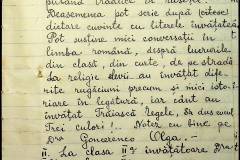 putând traduce în rusește.
Deasemenea pot scrie după (citesc)
dictare cuvinte cu literele învățate.
Pot susține mici conversații în
limba română, despre lucrurile
din clasă, din curte, de pe stradă
La religie elevii au învățat dife-
rite rugăciuni precum și mici isto-
rioare în legătură, iar cânt au
învățat Trăiască Regele, și Drapelul
Trei culori! . Notez cu bine pe
Dra Goncerenco Olga.
II. La clasa II-a învățătoare Dra